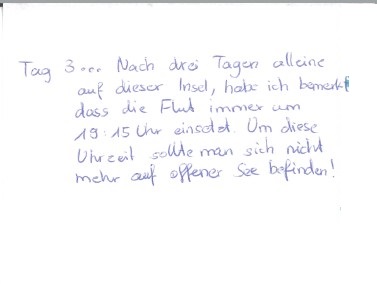 Tag 3... Nach drei Tagen alleine
auf dieser Insel, habe ich bemerkt
dass die Flut immer um
19:15 Uhr einsetzt. Um diese
Uhrzeit sollte man sich nicht
mehr auf offener See befinden!